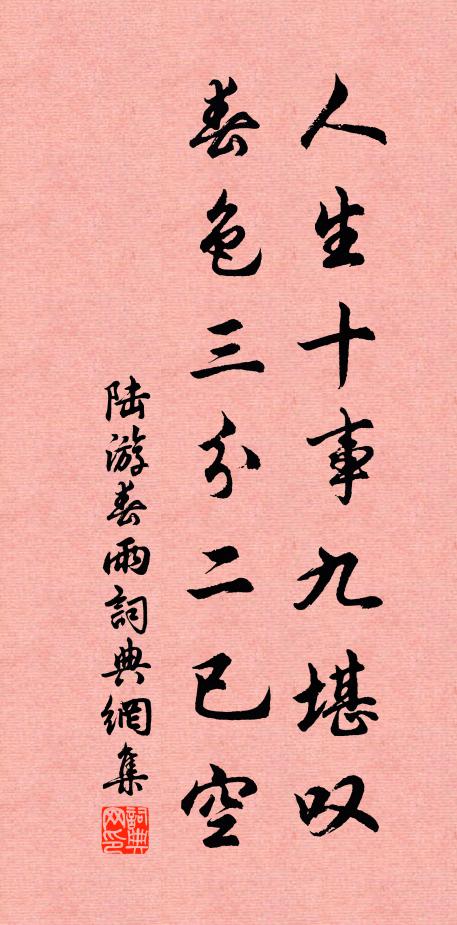 人生十事九堪叹
春色三分二已空
陆游春雨詞典網集
詞典网印